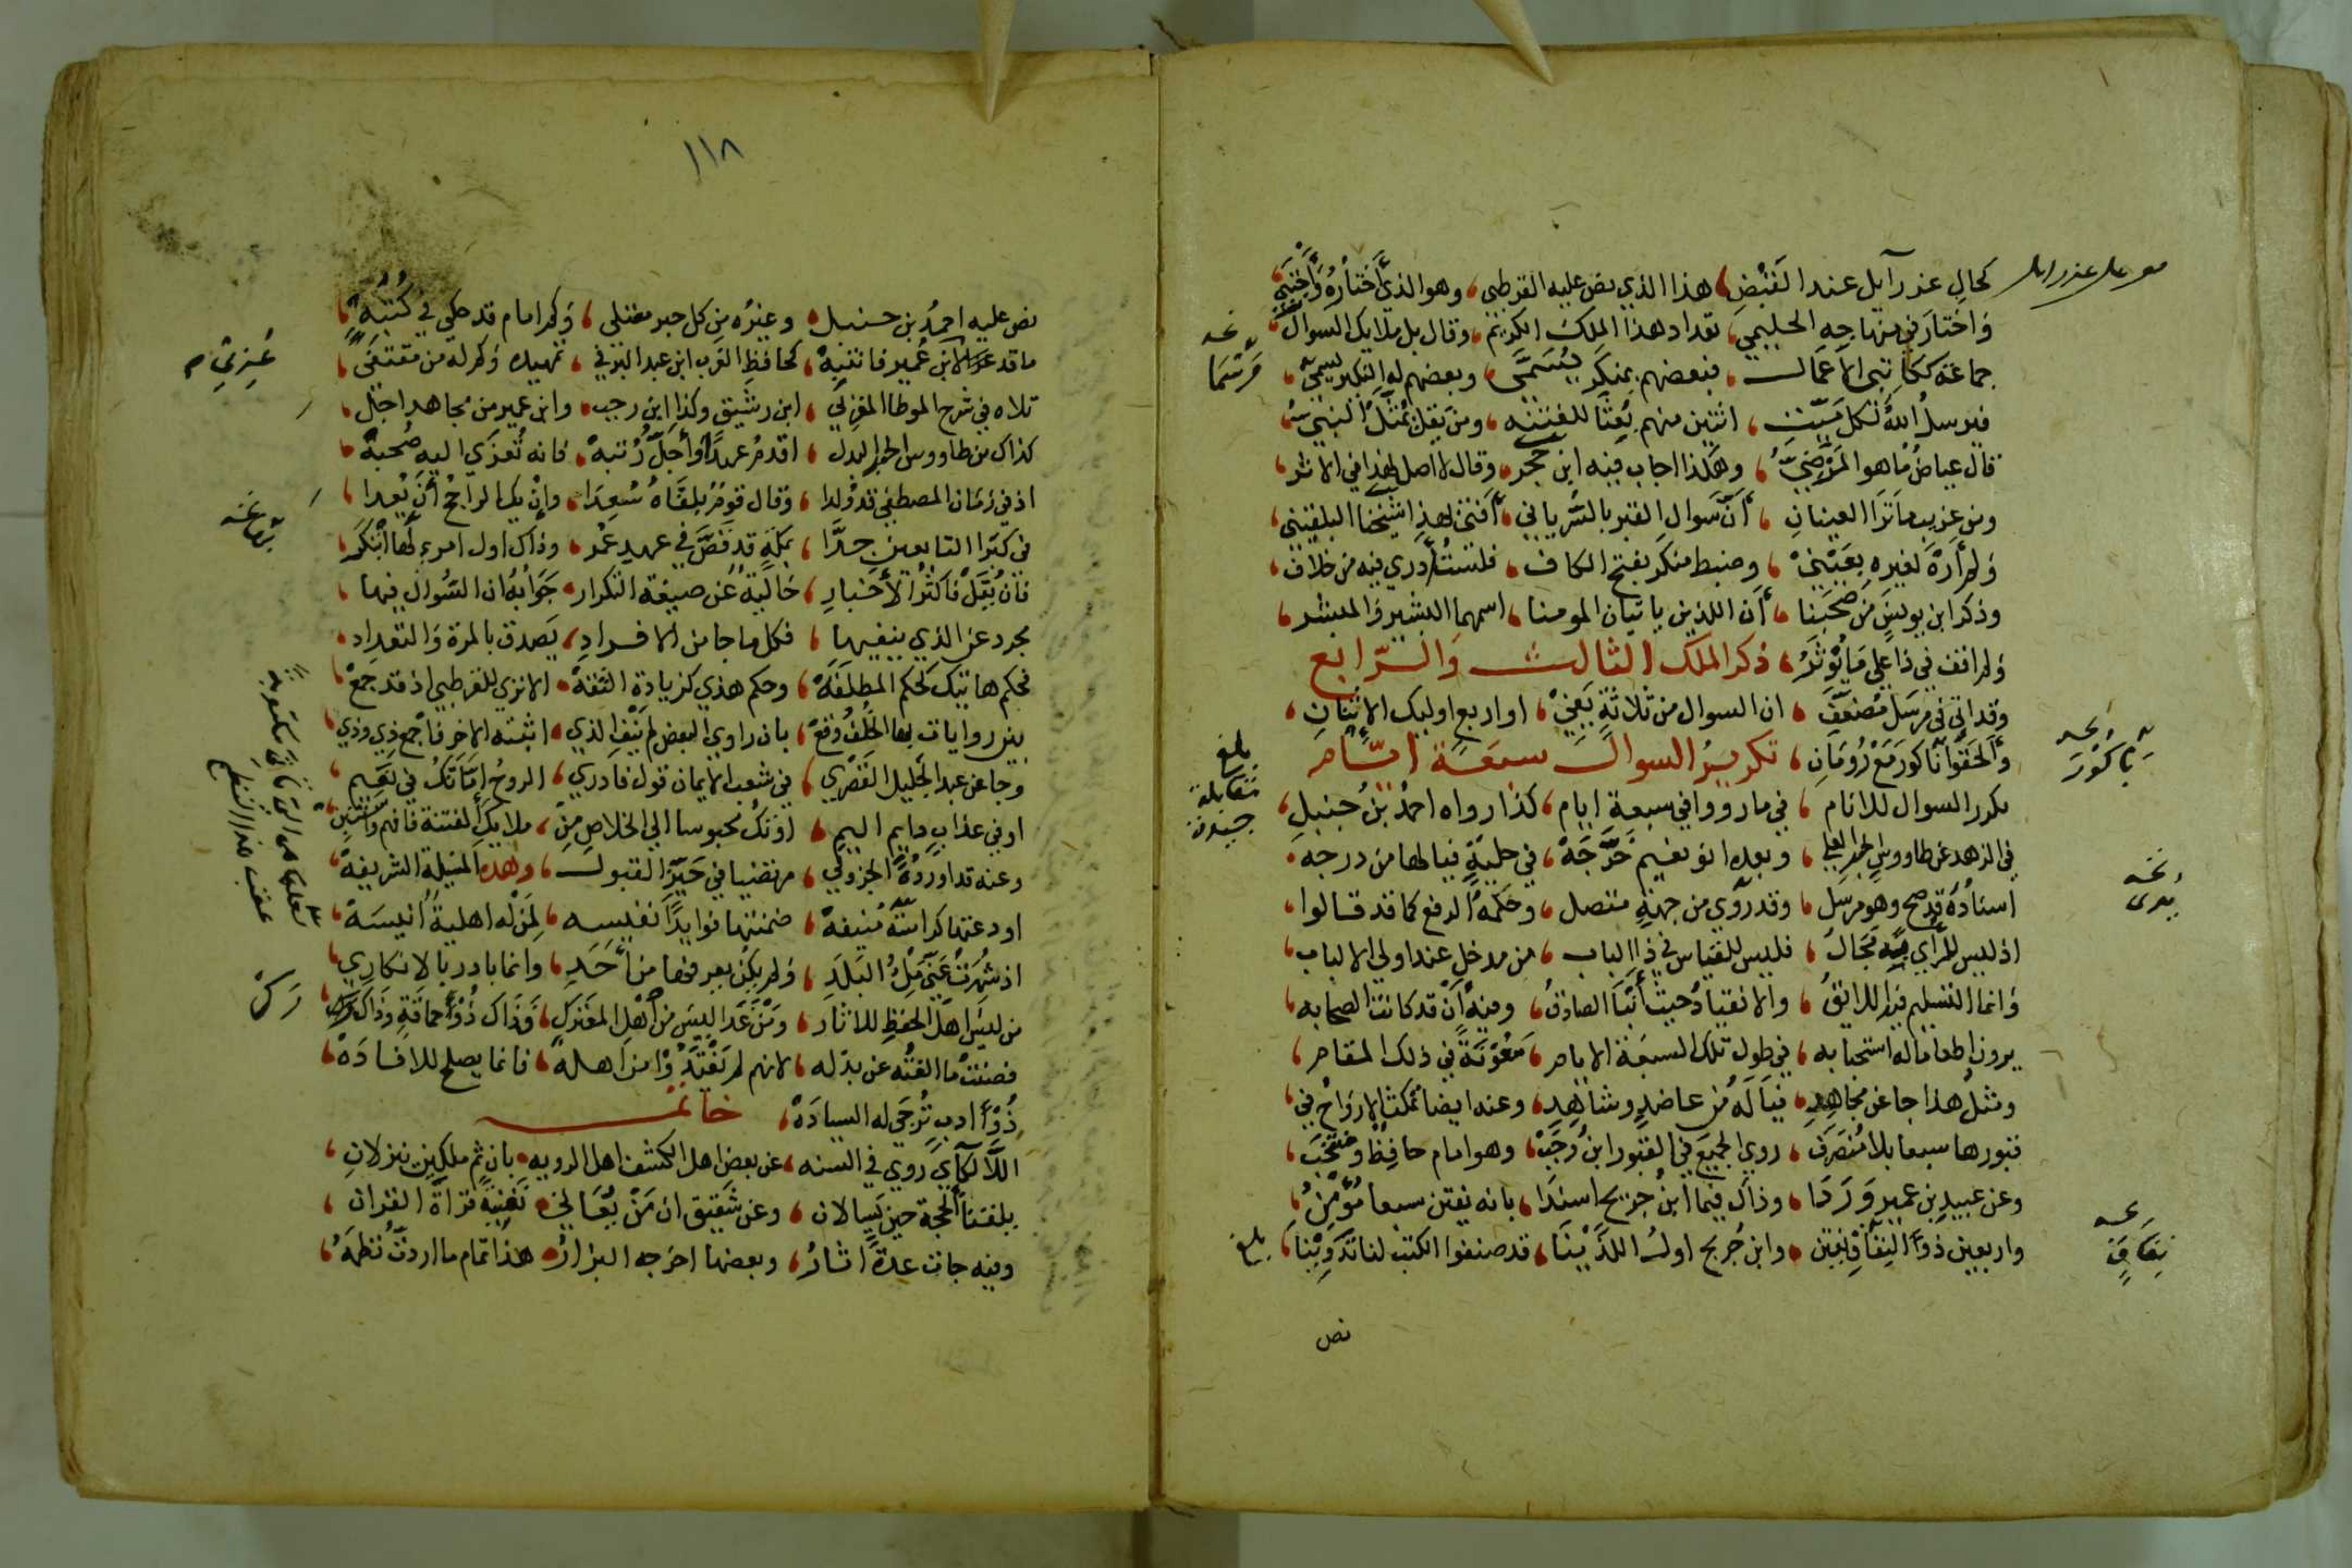 كحال عزرآيل عند القبض، هذا الذي نص عليه القرطبي، وهو الذي أختاره وأجتبي
واختار في منهاجه الحليمي، تعداد هذا الملك الكريم، وقال بل ملايك السوال
جماعة ككاتبي الاعمال، فبعضهم بمنكر يسمى، وبعضهم له النكير يسمى
فيرسل الله لكل ميت، اثنين منهم بعثا للفتنة
قال عياض ما هو المرضي، وهكذا اجاب فيه ابن حجر، وقال لا اصل لهذا في الاثر
ومن غريب ما ترا العينان، أن سوال القبر بالسرياني، أفتى بهذا شيخنا البلقيني
ولم أره لغيره بعيني، وضبط منكر بفتح الكاف، فلست أدري فيه من خلاف
وذكر ابن يونس من صحبنا، أن اللذين ياتيان المومنا، اسمهما البشير والمبشر
ولم اقف في ذا علي ما يوثر، ذكر الملك الثالث والرابع
وقد اتى في مرسل مضعف، ان السوال من ثلاثة يفي، او اربع اوليك الاثنان
وألحقوا ناكور مع رومان، تكرير السوال سبعة ايام
يكرر السوال للانام، في ما رووا في سبعة ايام، كذا رواه احمد بن حنبل
في الزهد عن طاووس الحبر العلي، وبعده ابو نعيم خرجه، في حلية فيا لها من درجه
اسناده قد صح وهو مرسل، وقد روي من جهة متصل، وحكمه الرفع كما قد قالوا
اذ ليس للرأي فيه مجال، فليس للقياس في ذا الباب، من مدخل عند اولي الالباب
وانما التسليم فيه اللائق، والانقياد حيث أنبا الصادق، وفيه أن قد كانت الصحابه
يرون اطعاما له استحبابه، في طول تلك السبعة الايام، معونة في ذلك المقام
ومثل هذا جا عن مجاهد، فيا له من عاضد وشاهد، وعنه ايضا تمكث الارواح في
قبورها سبعا بلا منصرف، روي الجميع في القبور ابن رجب، وهو امام حافظ ومنتخب
وعن عبيد بن عمير وردا، وذاك فيما ابن جريج اسندا، بانه يفتن سبعا مؤمن
واربعين ذو النفاق يفتن، وابن جريج اول اللذينا، قد صنفوا الكتب لنا تدوينا
نص
بلغ مقابلة
بلغ
١١٨
نص عليه احمد بن حنبل، وغيره من كل حبر معتلي، وكم امام قد حكي في كتبه
ما قد عزي لابن عمير فانتبه، كحافظ الغرب ابن عبد البر في، تمهيده وكم له من مقتفي
تلاه في شرح الموطا المغربي، ابن رشيق وكذا ابن رجب، وابن عمير من مجاهد اجل
كذاك من طاووس الحبر البدل، اقدم عهدا وأجل رتبة، فانه تعزي اليه صحبة
اذ في زمان المصطفي قد ولدا، وقال قوم بلقاه سعدا، وإن يك الراجح أن يعدا
في كبرا التابعين جدا، بمكة قد قص في عهد عمر، وذاك اول امرء لها ابتكر
فان يقل فاكثر الأخبار، خالية عن صيغة التكرار، جوابه ان السوال فيها
مجرد عن الذي ينفيها، فكلما جا من الافراد، يصدق بالمرة والتعداد
فحكم هاتيك كحكم المطلقه، وحكم هذي كزيادة الثقه، الا تري للقرطبي اذ قد جمع
بين روايات بها الخلف وقع، بان راوي البعض لم ينف الذي، اثبته الاخر فاجمع ذي وذي
وجا عن عبد الجليل القصري، في شعب الايمان قول فادري، الروح اما تك في نعيم
او في عذاب دايم اليم، او تك محبوسا الي الخلاص من، ملايك الفتنة فافهم
وعنه قد اورده الجزولي، مرتضيا في حيز القبول، وهذه المسئلة الشريفة
اودعتها كراسة منيفة، ضمنتها فوايدا نفيسه، لمن له اهلية انيسه
اذ شهرت عني ملء البلد، ولم يكن يعرفها من أحد، وانما بادر بالانكار
من ليس اهل الحفظ للاثار، ومن غدا ليس من أهل المعترك، وذاك ذو حماقة
فصنت ما الفته عن بذله، لانهم لم يغتدوا من اهله، فانما يصلح للافاده
ذو أدب ترجي له السياده، خاتمه
اللآلكآي روي في السنه، عن بعض اهل الكشف اهل الرويه، بان ثم ملكين ينزلان
يلقنا الحجة حين يسالان، وعن شقيق ان من يعاني، تغنيه قراة القران
وفيه جات عدة اثار، وبعضها اخرجه البزار، هذا تمام ما اردت نظمه